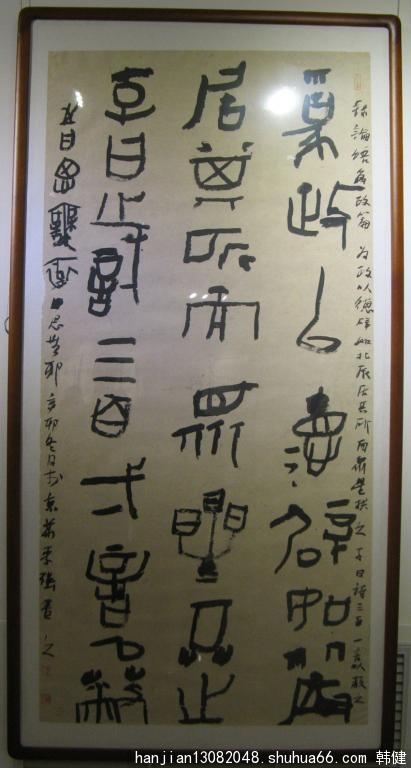 錄論語為政篇 为政以德辟如北辰居其所而眾星拱之 子曰詩三百一言以蔽之
為政以悳辟如北辰
居其所而眾星共之
子曰詩三百一言以蔽
之曰思無邪 曰思無邪 辛卯冬日於京華
hanjian13082048.shuhua66.com 韩健